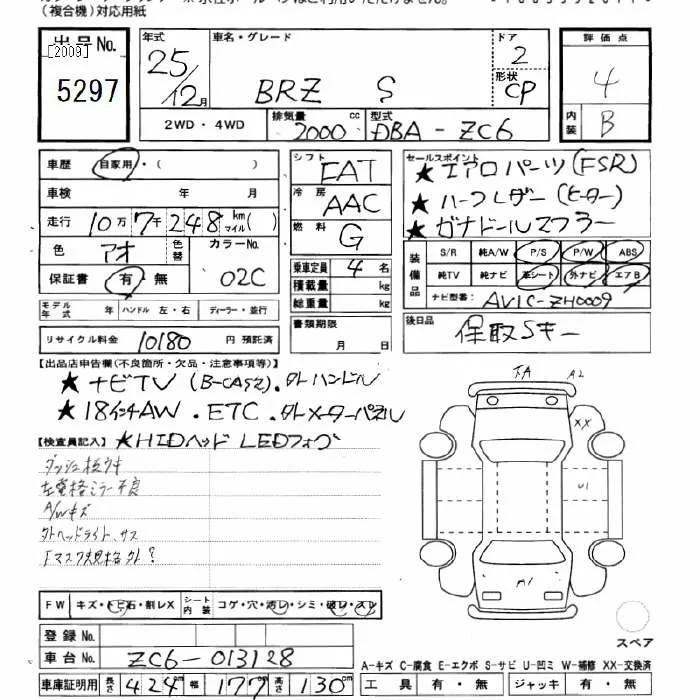 （複合機）対応用紙
出品No.
[2009]
5297
年式
25/12月
車名・グレード
BRZ S
ドア
2
形状
CP
評価点
4
内装
B
2WD・4WD
排気量
2000 cc
型式
DBA-ZC6
車歴 自家用・( )
車検 年 月
走行 10万7千248 km マイル( )
色 アオ 色替 カラーNo.
02C
保証書 有・無
シフト FAT
冷房 AAC
燃料 G
乗車定員 4名
積載量 kg
総重量 kg
セールスポイント
★エアロパーツ(FSR)
★ハーフレザー(ヒーター)
★ガナドールマフラー
装備品
S/R 純A/W P/S P/W ABS
純TV 純ナビ 革シート 外ナビ エアB
ナビ型番： AVIC-ZH0009
モデル年式 年 ハンドル 左・右 ディーラー・並行
リサイクル料金 10180 円 預託済
書類期限 月 日
後日品 保取Sキー
【出品店申告欄(不良箇所・欠品・注意事項等)】
★ナビTV(B-CAS2).外ハンドル
★18インチAW.ETC.外メーターパネル
【検査員記入】★HIDヘッド LEDフォグ
ダッシュ板ウキ
左電格ミラー不良
A/Wキズ
外ヘッドライト、
A2
XX
U1
A1
FW キズ・トビ石・割レX シート内装 コゲ・穴・汚レ・シミ・破レ・スレ
登録No.
車台No. ZC6-013128
車庫証明用 長さ 424cm 幅 177cm 高さ 130cm
スペア
A-キズ C-腐食 E-エクボ S-サビ U-凹ミ W-補修 XX-交換済
工具 有・無 ジャッキ 有・無